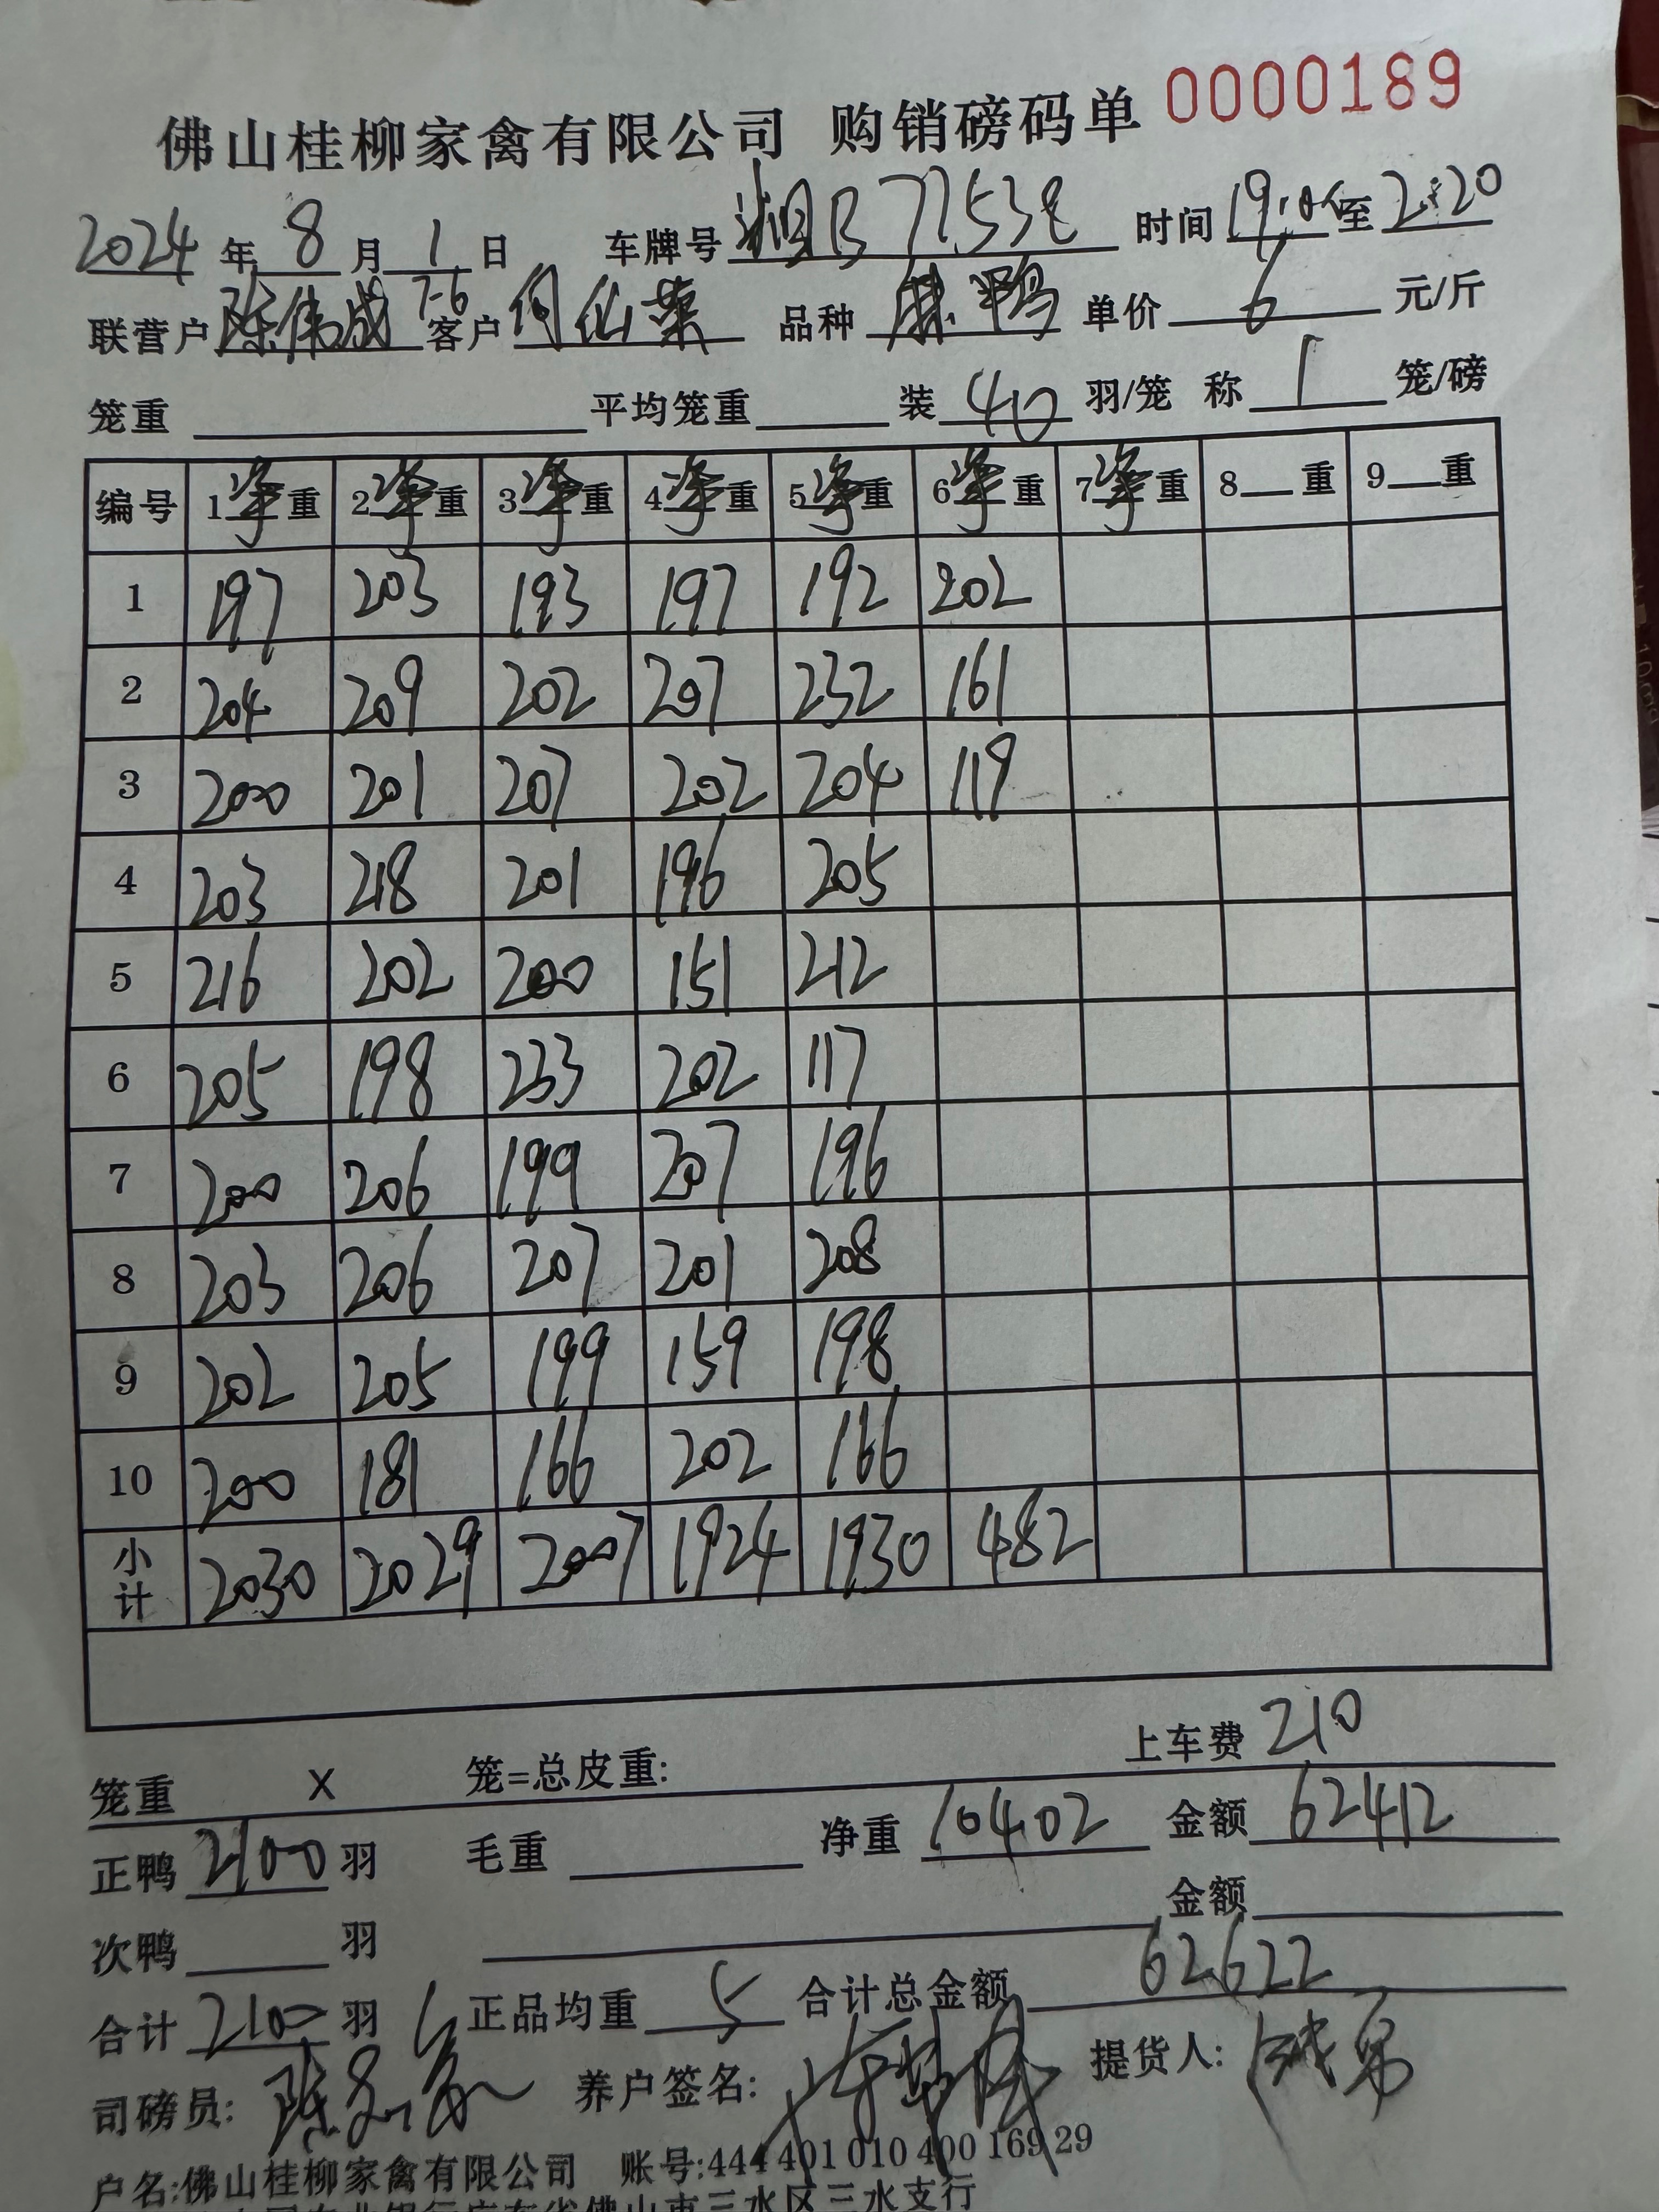 佛山桂柳家禽有限公司 购销磅码单 0000189
2024 年 8 月 1 日 车牌号 湘B77538 时间 19:05 至 2:20
联营户 陈伟成 7-6 客户 何仙荣 品种 麻鸭 单价 6 元/斤
笼重 平均笼重 装 40 羽/笼 称 1 笼/磅
编号 1净重 2净重 3净重 4净重 5净重 6净重 7净重 8__重 9__重
1 197 203 193 197 192 202
2 204 209 202 207 232 161
3 200 201 207 202 204 119
4 203 218 201 196 205
5 216 202 200 151 212
6 205 198 233 202 117
7 200 206 199 207 196
8 203 206 207 201 208
9 202 205 199 159 198
10 200 181 166 202 166
小计 2030 2029 2007 1924 1930 482
上车费 210
笼重 X 笼=总皮重:
正鸭 2100 羽 毛重 净重 10402 金额 62412
次鸭 羽 金额
合计 2100 羽 正品均重 5 合计总金额 62622
司磅员: 养户签名: 提货人:
户名:佛山桂柳家禽有限公司 账号:444 401 010 400 169 29
佛山市三水区三水支行